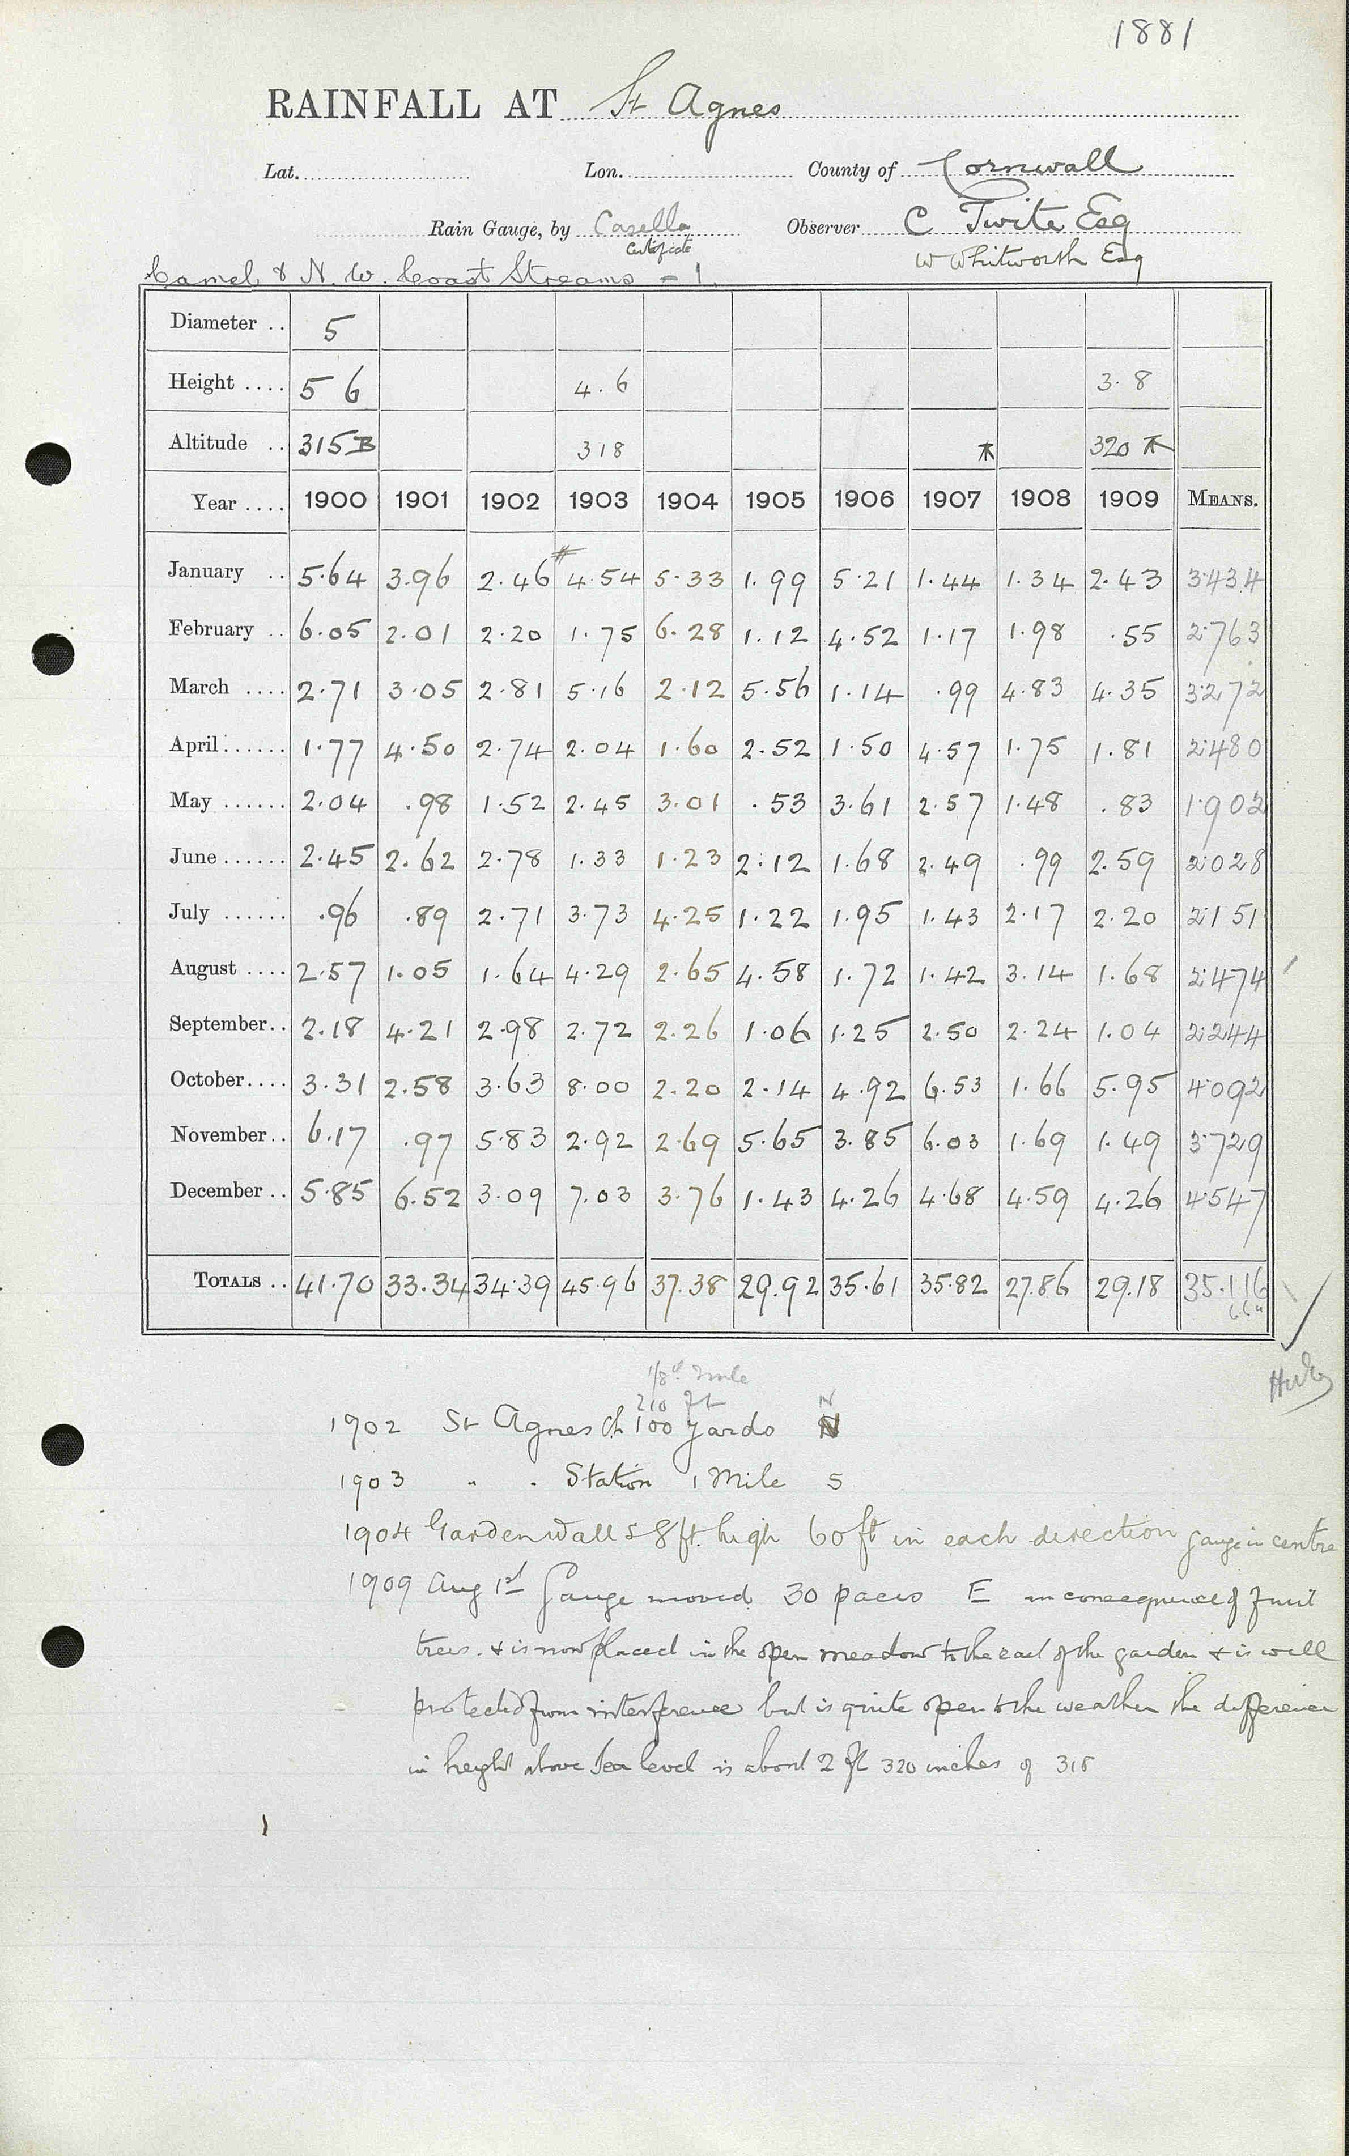 1881
RAINFALL AT St Agnes
Lat. Lon. County of Cornwall
Rain Gauge, by Casella Observer C Twite Esq
Certificate W Whitworth Esq
Camel & N. W. Coast Streams - 1.
Diameter .. 5
Height .... 5 6 4.6 3.8
Altitude .. 315 B 318 320
Year .... 1900 1901 1902 1903 1904 1905 1906 1907 1908 1909 MEANS.
January .. 5.64 3.96 2.46 4.54 5.33 1.99 5.21 1.44 1.34 2.43 3.434
February .. 6.05 2.01 2.20 1.75 6.28 1.12 4.52 1.17 1.98 .55 2.763
March .... 2.71 3.05 2.81 5.16 2.12 5.56 1.14 .99 4.83 4.35 3.272
April ...... 1.77 4.50 2.74 2.04 1.60 2.52 1.50 4.57 1.75 1.81 2.480
May ...... 2.04 .98 1.52 2.45 3.01 .53 3.61 2.57 1.48 .83 1.902
June ...... 2.45 2.62 2.78 1.33 1.23 2.12 1.68 2.49 .99 2.59 2.028
July ...... .96 .89 2.71 3.73 4.25 1.22 1.95 1.43 2.17 2.20 2.151
August .... 2.57 1.05 1.64 4.29 2.65 4.58 1.72 1.42 3.14 1.68 2.474
September.. 2.18 4.21 2.98 2.72 2.26 1.06 1.25 2.50 2.24 1.04 2.244
October.... 3.31 2.58 3.63 8.00 2.20 2.14 4.92 6.53 1.66 5.95 4.092
November.. 6.17 .97 5.83 2.92 2.69 5.65 3.85 6.03 1.69 1.49 3.729
December .. 5.85 6.52 3.09 7.03 3.76 1.43 4.26 4.68 4.59 4.26 4.547
TOTALS .. 41.70 33.34 34.39 45.96 37.38 29.92 35.61 35.82 27.86 29.18 35.116
1/8th mile
210 ft N
1902 St Agnes Ch 100 yards N
1903 " " Station 1 Mile S
1904 Garden Walls 8 ft. high 60 ft in each direction gauge in centre
1909 Aug 1st Gauge moved 30 paces E in consequence of fruit
trees. & is now placed in the open meadow to the east of the garden & is well
protected from interference but is quite open to the weather the difference
in height above Sea level is about 2 ft 320 inches of 318